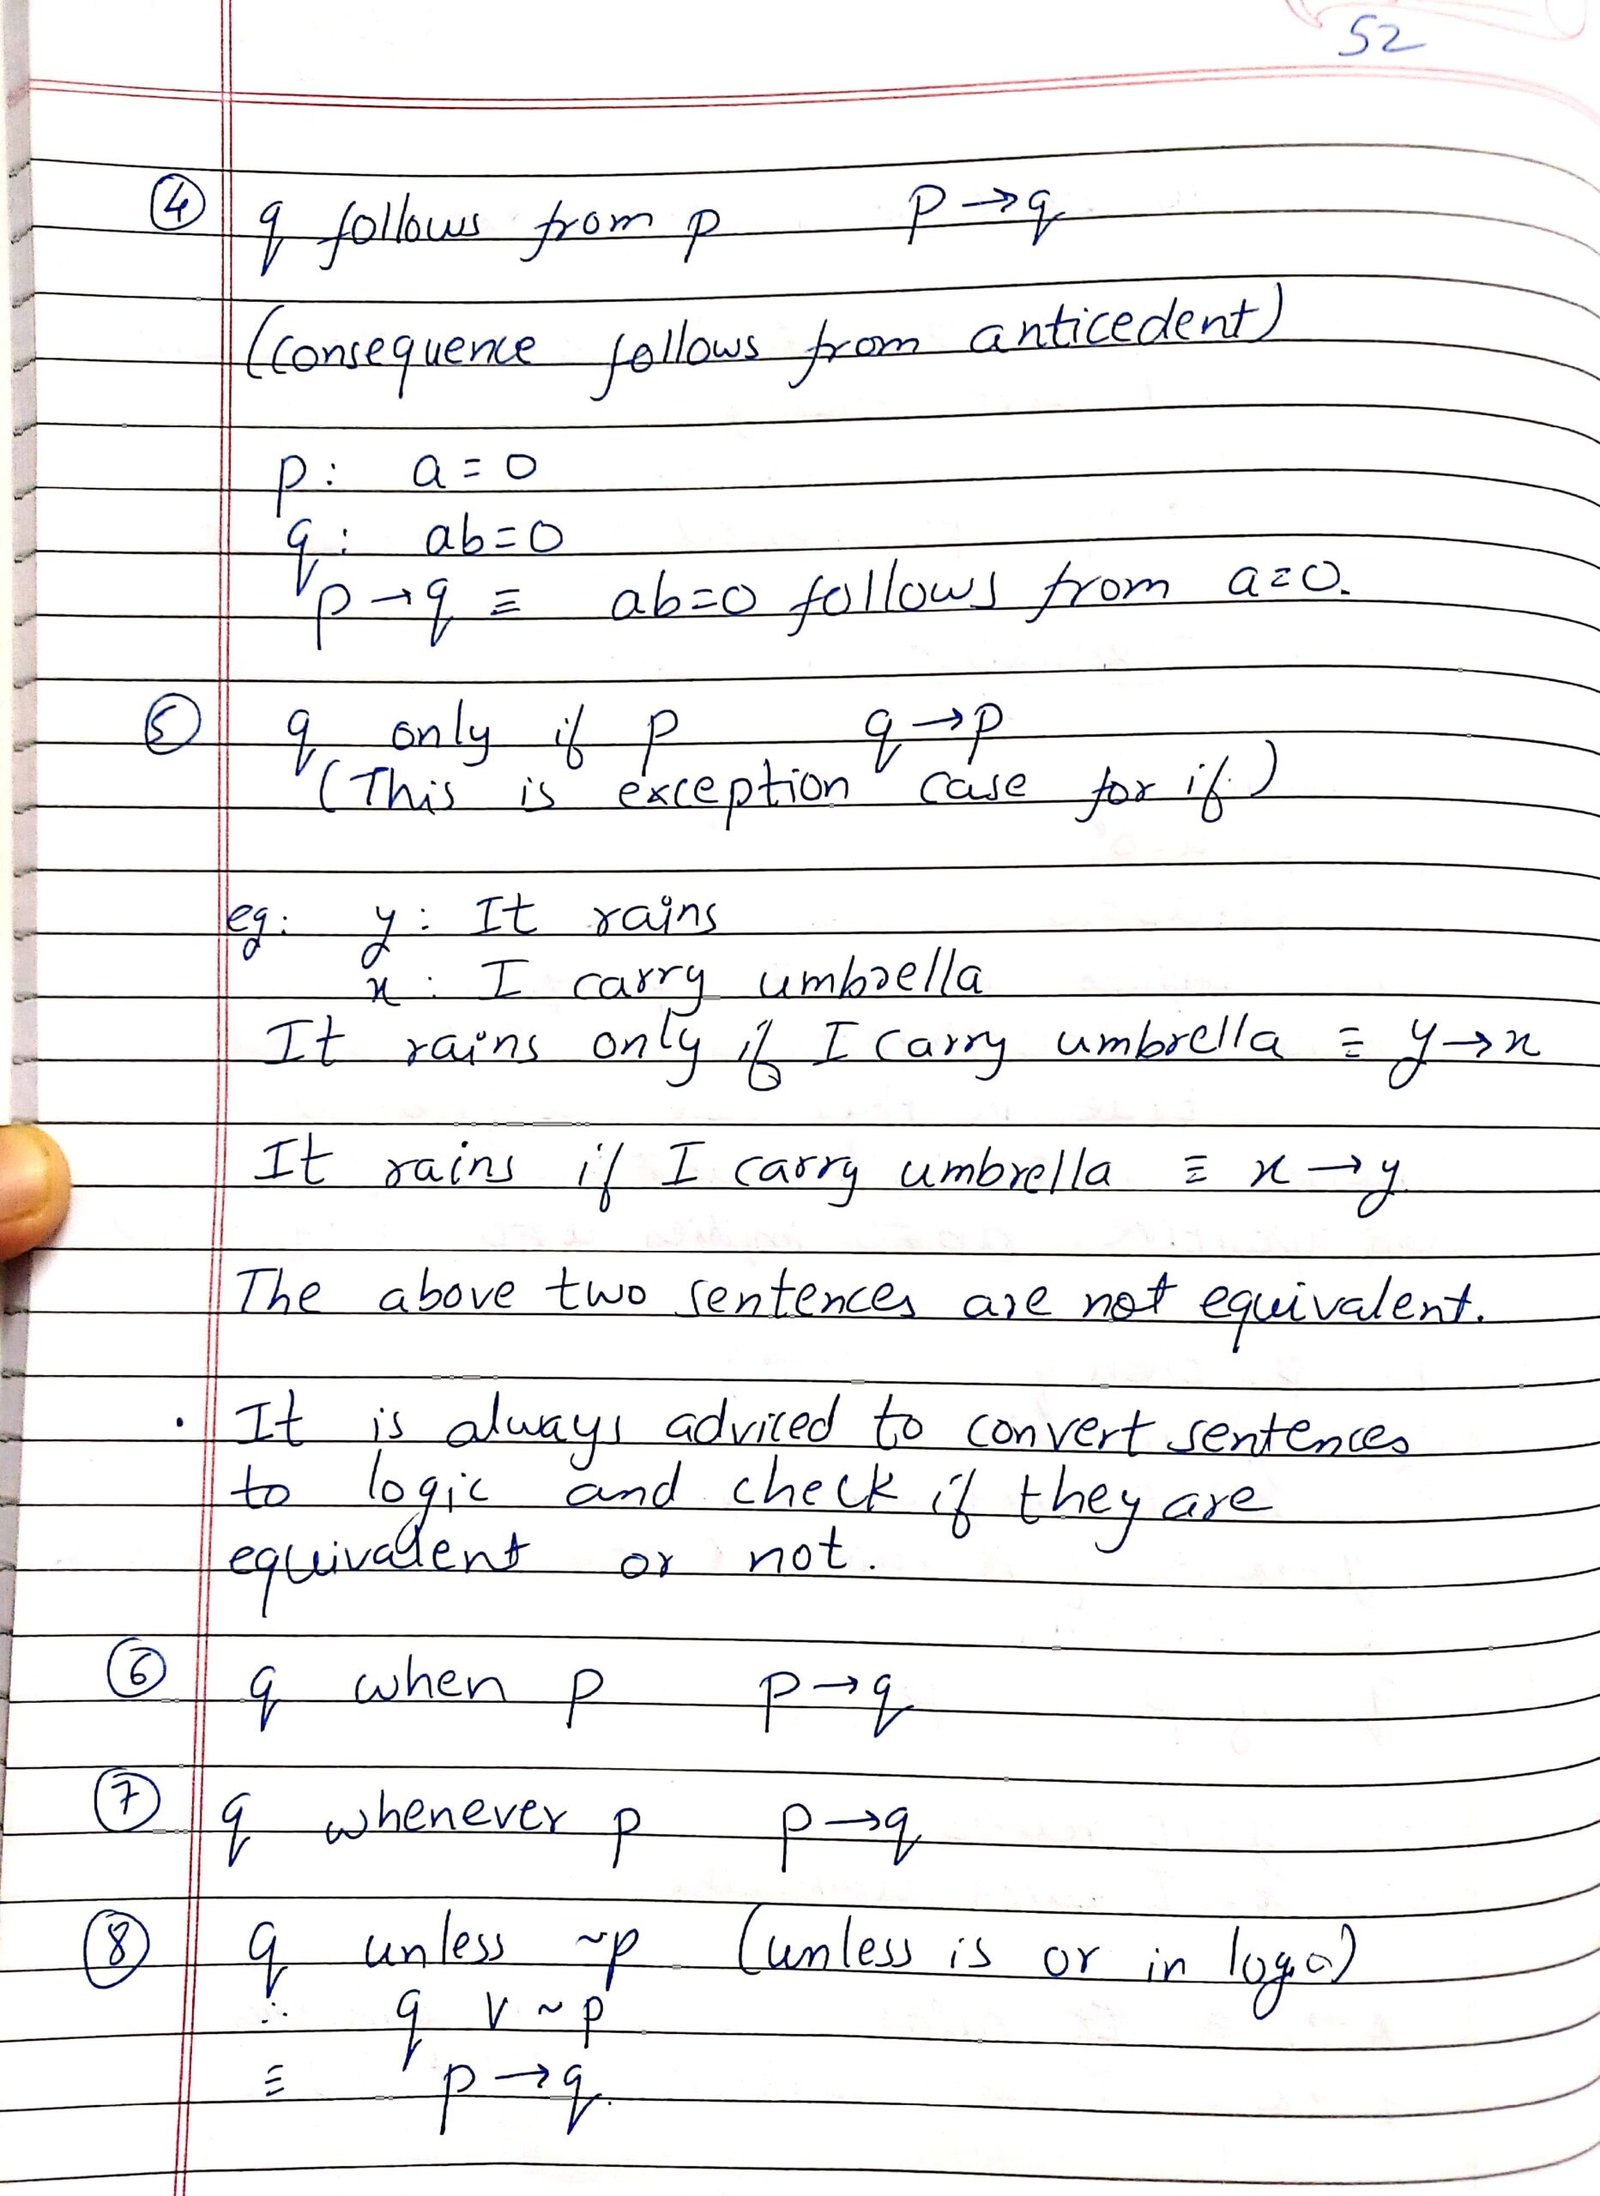 52
④ q follows from p p→q
(consequence follows from anticedent)
p: a=0
q: ab=0
p→q ≡ ab=0 follows from a=0.
⑤ q only if p q→p
(This is exception case for if)
eg: y: It rains
x: I carry umbrella
It rains only if I carry umbrella ≡ y→x
It rains if I carry umbrella ≡ x→y
The above two sentences are not equivalent.
· It is always adviced to convert sentences
to logic and check if they are
equivalent or not.
⑥ q when p p→q
⑦ q whenever p p→q
⑧ q unless ~p (unless is or in logic)
∴ q ∨ ~p
≡ p→q.